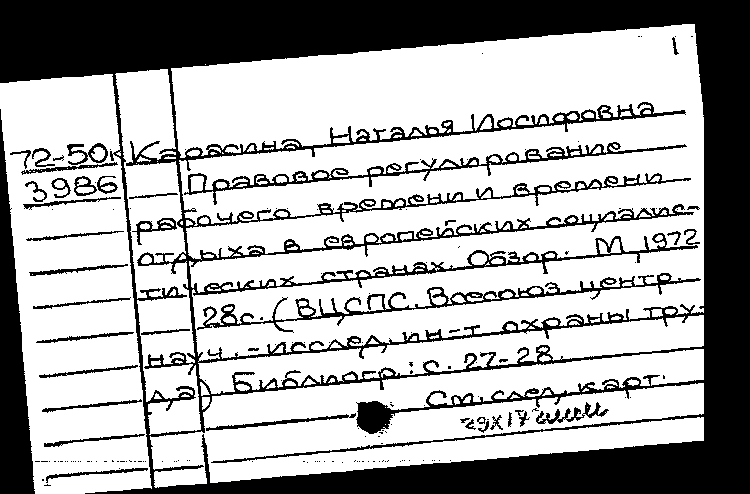 1
72-50к Карасина, Наталья Иосифовна
3986 Правовое регулирование
рабочего времени и времени
отдыха в европейских социалис-
тических странах. Обзор. М, 1972
28с. (ВЦСПС. Всесоюз. центр.
науч.-исслед. ин-т охраны тру-
да) Библиогр.: с. 27-28.
См. след. карт.
29Х17